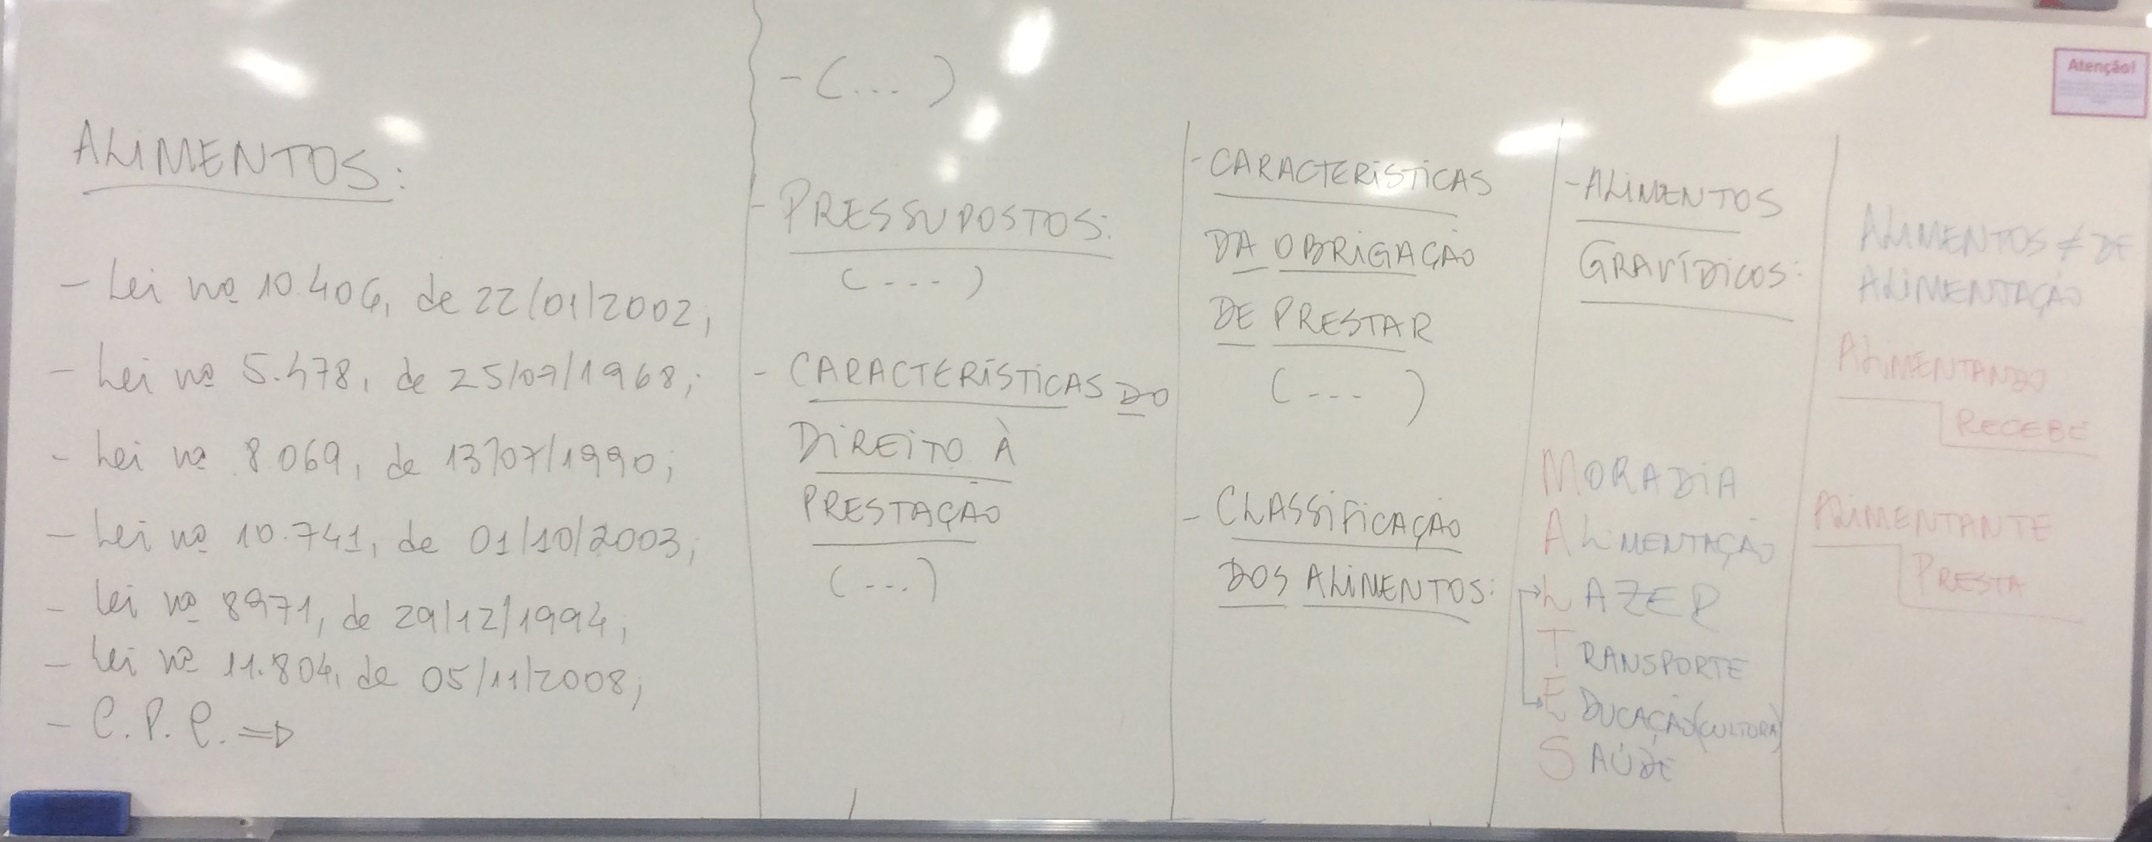 ALIMENTOS:
- Lei nº 10.406, de 22/01/2002;
- Lei nº 5.478, de 25/07/1968;
- Lei nº 8.069, de 13/07/1990;
- Lei nº 10.741, de 01/10/2003;
- Lei nº 8971, de 29/12/1994;
- Lei nº 11.804, de 05/11/2008;
- C.P.C. ⇒
- (...)
- PRESSUPOSTOS:
(...)
- CARACTERÍSTICAS DO
DIREITO À
PRESTAÇÃO
(...)
- CARACTERÍSTICAS
DA OBRIGAÇÃO
DE PRESTAR
(...)
- CLASSIFICAÇÃO
DOS ALIMENTOS:
- ALIMENTOS
GRAVÍDICOS:
MORADIA
ALIMENTAÇÃO
LAZER
TRANSPORTE
EDUCAÇÃO (CULTURA)
SAÚDE
ALIMENTOS ≠ DE
ALIMENTAÇÃO
ALIMENTANDO
RECEBE
ALIMENTANTE
PRESTA
Atenção!